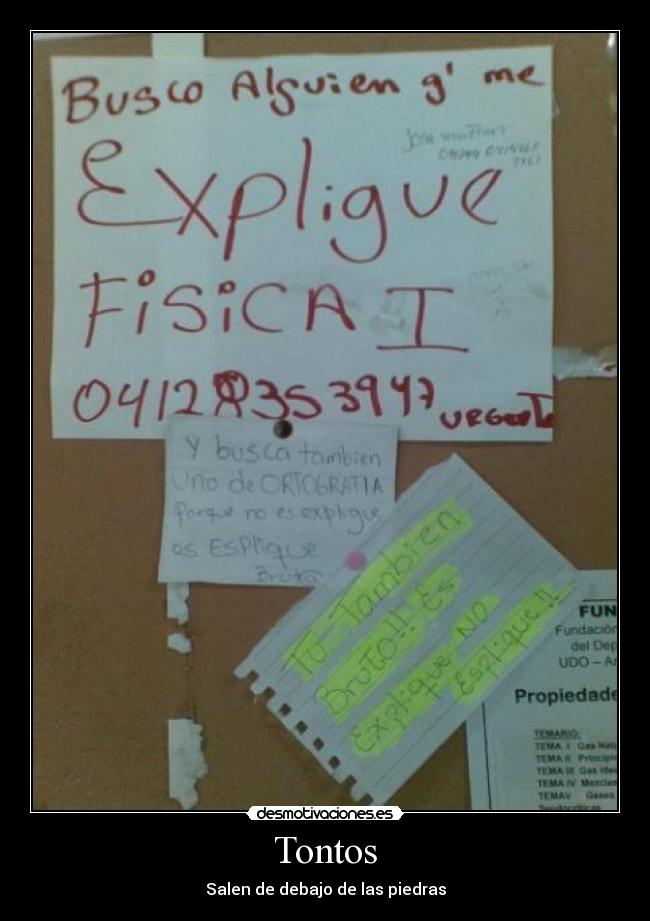 Busco Alguien q' me
Explique
FísiCA I
0412 8353947 URGente
Y busca tambien
uno de ORTOGRAFIA
Porque no es explique
es ESPlique
Bruto
Tu Tambien
Bruto!! Es
Explique NO
Esplique!!
FUN
Fundación
del Dep
UDO – A
Propiedade
TEMARIO:
TEMA I Gas Natu
TEMA II Principi
TEMA III Gas Idea
TEMA IV Mezclas
TEMA V Gases
desmotivaciones.es
Tontos
Salen de debajo de las piedras